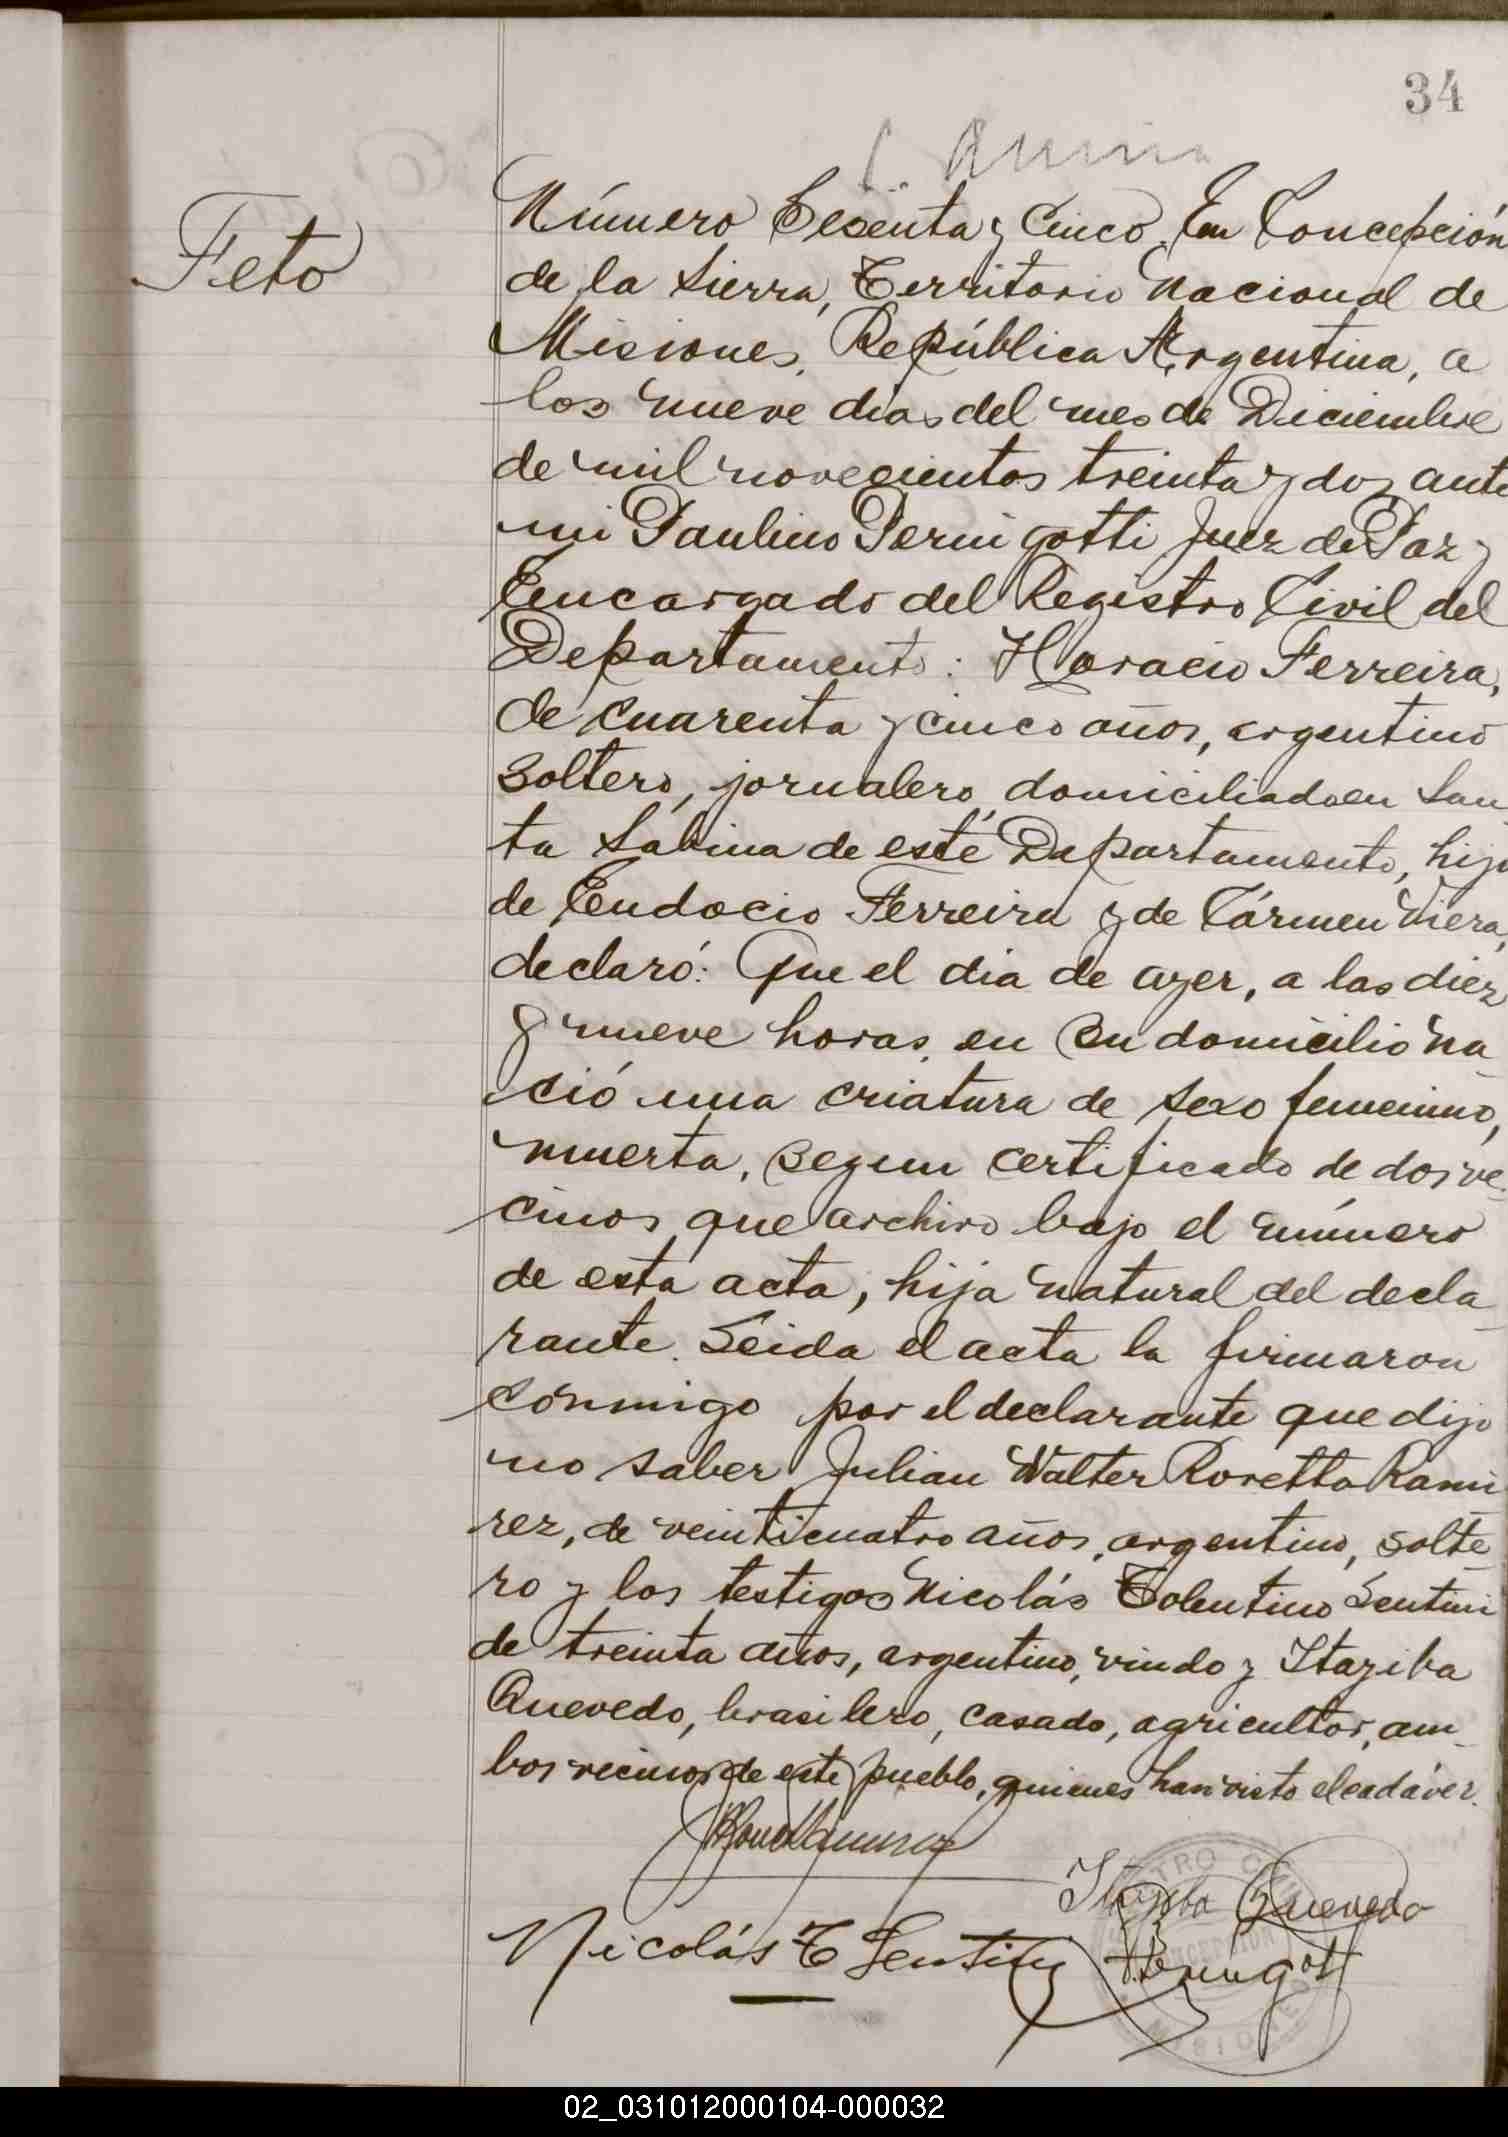 34
Feto
Número Sesenta y Cinco. En Concepción
de la Sierra, Territorio Nacional de
Misiones, República Argentina, a
los nueve dias del mes de Diciembre
de mil novecientos treinta y dos ante
mi Paulino Pernigotti Juez de Paz y
Encargado del Registro Civil del
Departamento: Horacio Ferreira,
de cuarenta y cinco años, argentino
soltero, jornalero, domiciliado en San
ta Sabina de este Departamento, hijo
de Eudocio Ferreira y de Cármen Viera,
declaró: Que el dia de ayer, a las diez
y nueve horas, en su domicilio na
ció una criatura de sexo femenino,
muerta, segun certificado de dos ve
cinos que archivo bajo el número
de esta acta, hija natural del decla
rante. Leida el acta la firmaron
conmigo por el declarante que dijo
no saber Julian Walter Rovetta Rami
rez, de veinticuatro años, argentino, solte
ro y los testigos Nicolás Tolentino Sentini
de treinta años, argentino, viudo y Itagiba
Quevedo, brasilero, casado, agricultor, am
bos vecinos de este pueblo, quienes han visto el cadáver.
Itagiba Quevedo
Nicolás T Sentini
02_031012000104-000032